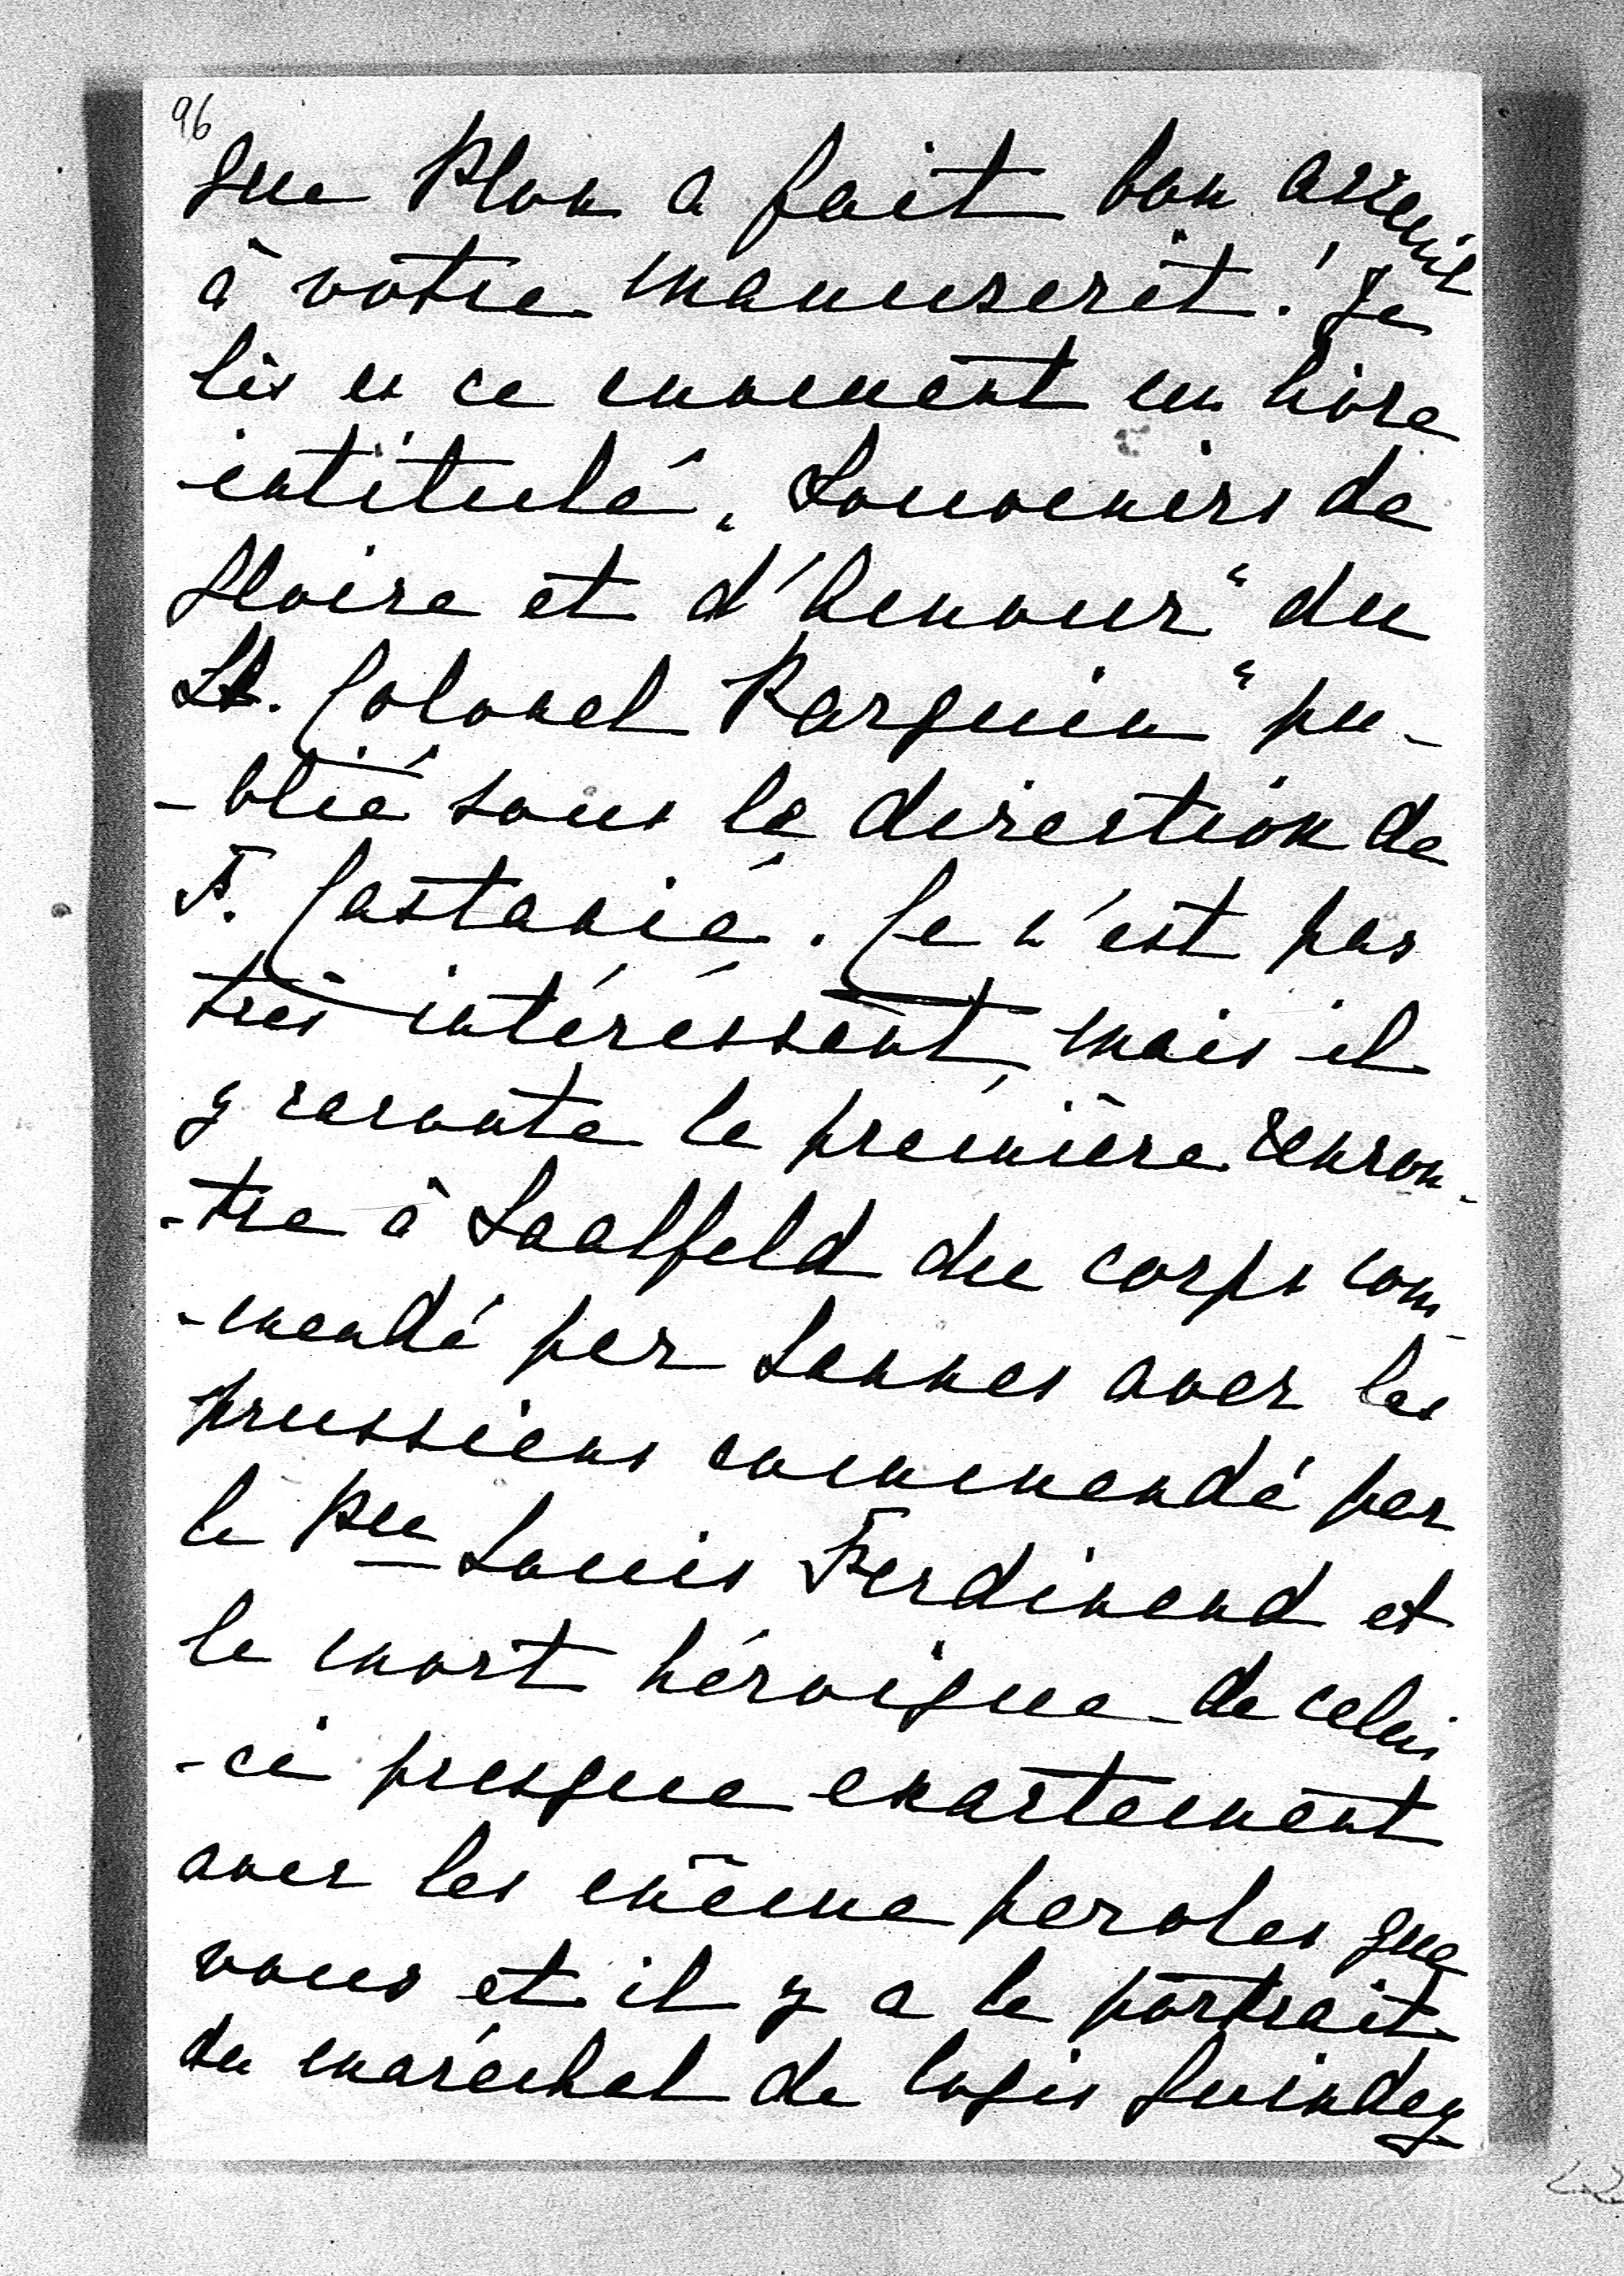 96
que Plon a fait bon acceuil
à votre manuscrit! Je
lis en ce moment un livre
intitulé „Souvenirs de
Gloire et d'Amour“ du
Lt. Colonel Parquin“ pu-
-blié sous la direction de
F. Castanié. Ce n'est pas
très intéressant mais il
y raconte la première rencon-
-tre à Saalfeld du corps com-
-mandé par Lannes avec les
prussiens commandé par
le Pce Louis Ferdinand et
la mort héroique de celui
-ci presque exactement
avec les même paroles que
vous et il y a le portrait
du maréchal de logis Guindey